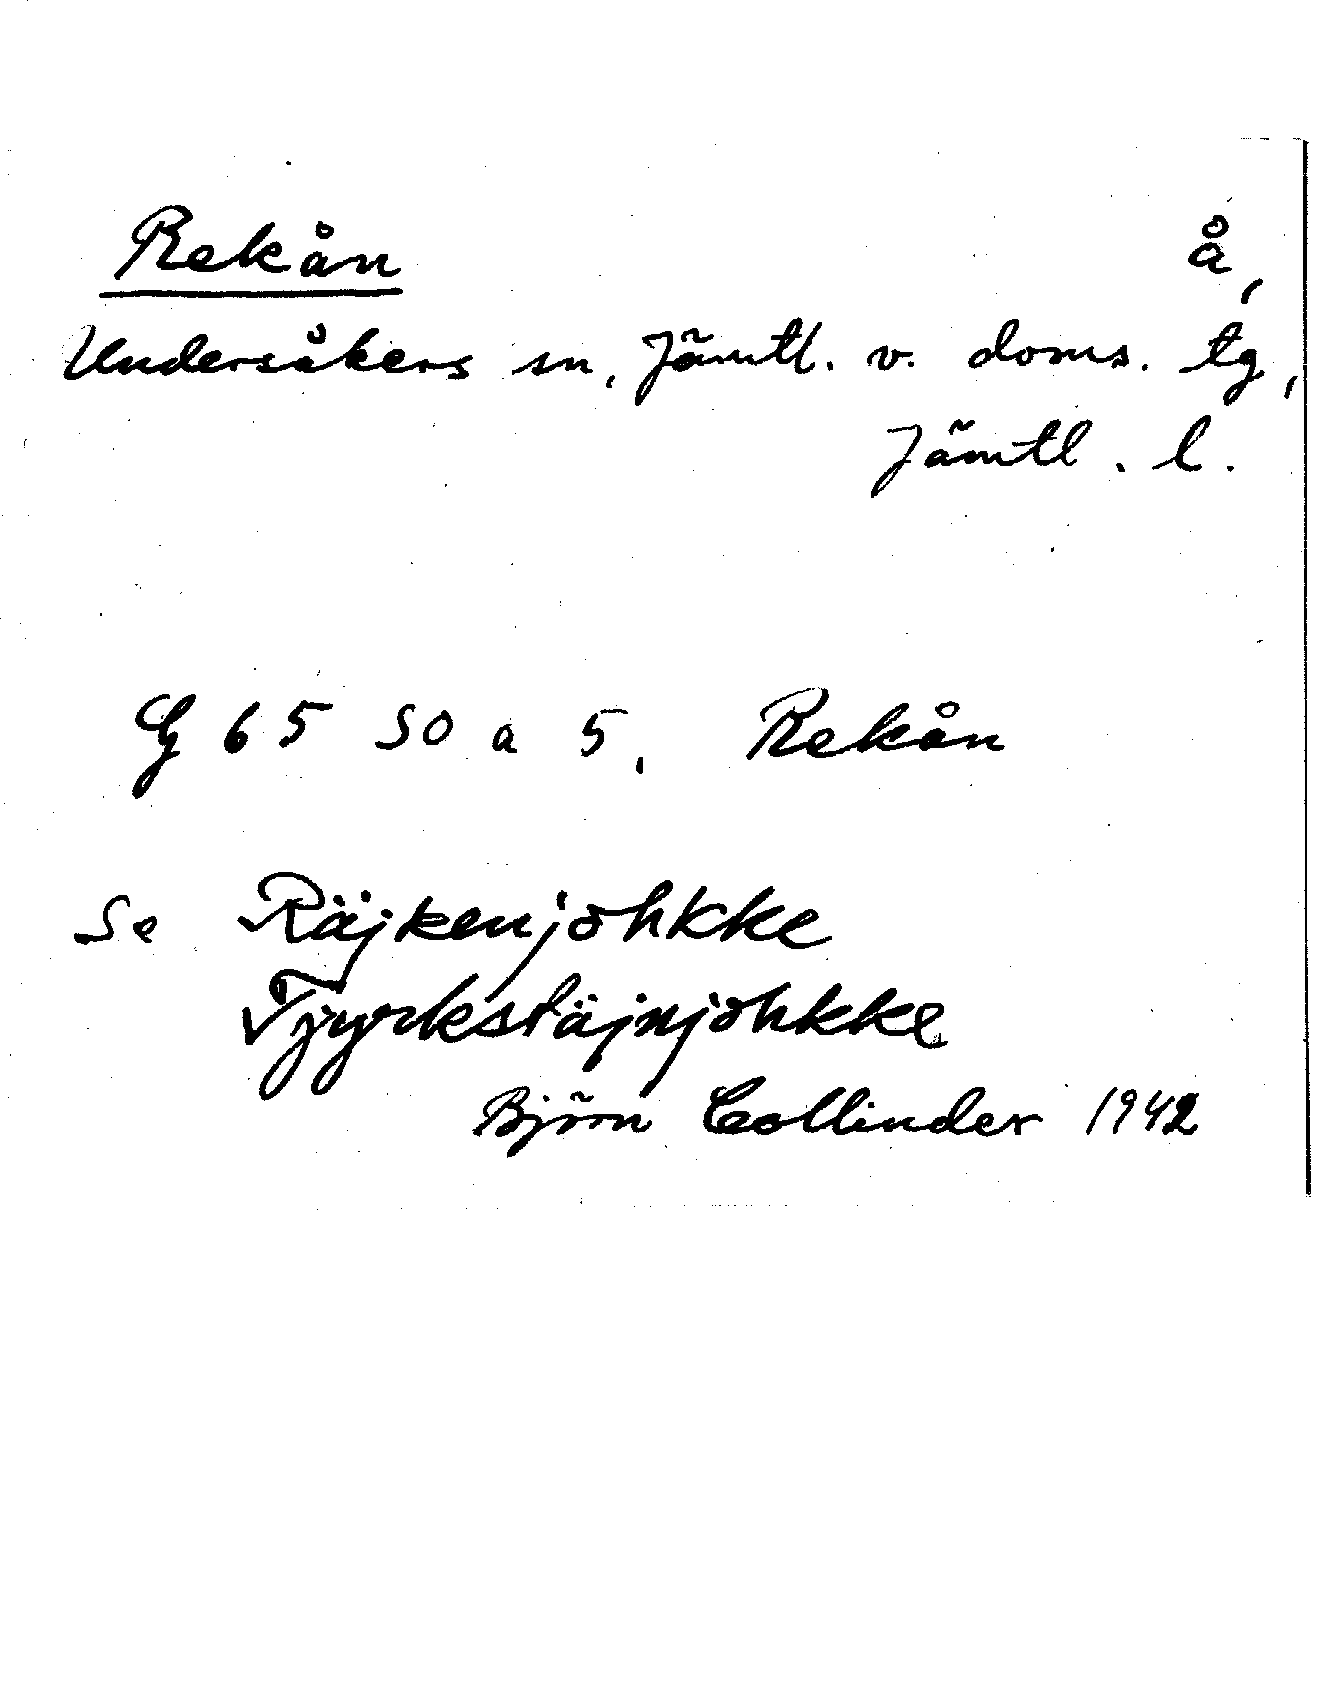 Rekån å,
Undersåkers sn, Jämtl. v. doms. tg,
Jämtl. l.
G 65 SO a 5, Rekån
Se Räjkenjohkke
Björn Collinder 1942